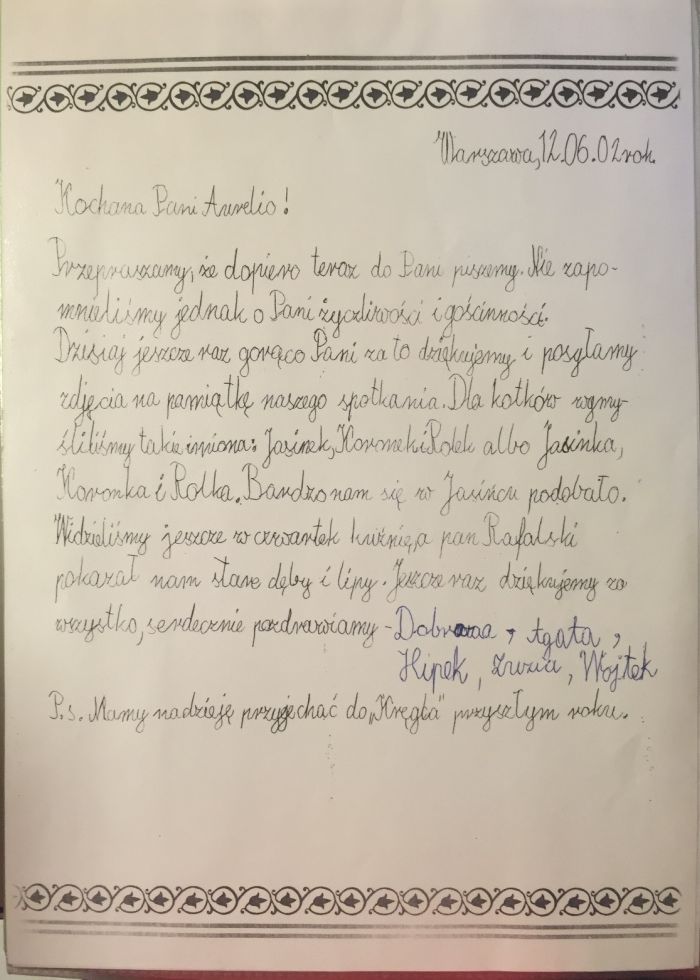 Warszawa, 12.06.02 rok.
Kochana Pani Aurelio!
Przepraszamy, że dopiero teraz do Pani piszemy. Nie zapo-
mnieliśmy jednak o Pani życzliwości i gościnności.
Dzisiaj jeszcze raz gorąco Pani za to dziękujemy i posyłamy
zdjęcia na pamiątkę naszego spotkania. Dla kotków wymy-
śliliśmy takie imiona: Jasinek, Koronek i Rolek albo Jasinka,
Koronka i Rolka. Bardzo nam się w Jasińcu podobało.
Widzieliśmy jeszcze w czwartek kuźnię, a pan Rafalski
pokazał nam stare dęby i lipy. Jeszcze raz dziękujemy za
wszystko, serdecznie pozdrawiamy - Dobrawa, Agata,
Hipek, Zuzia, Wojtek
P.s. Mamy nadzieję przyjechać do „Kręgla" przyszłym roku.